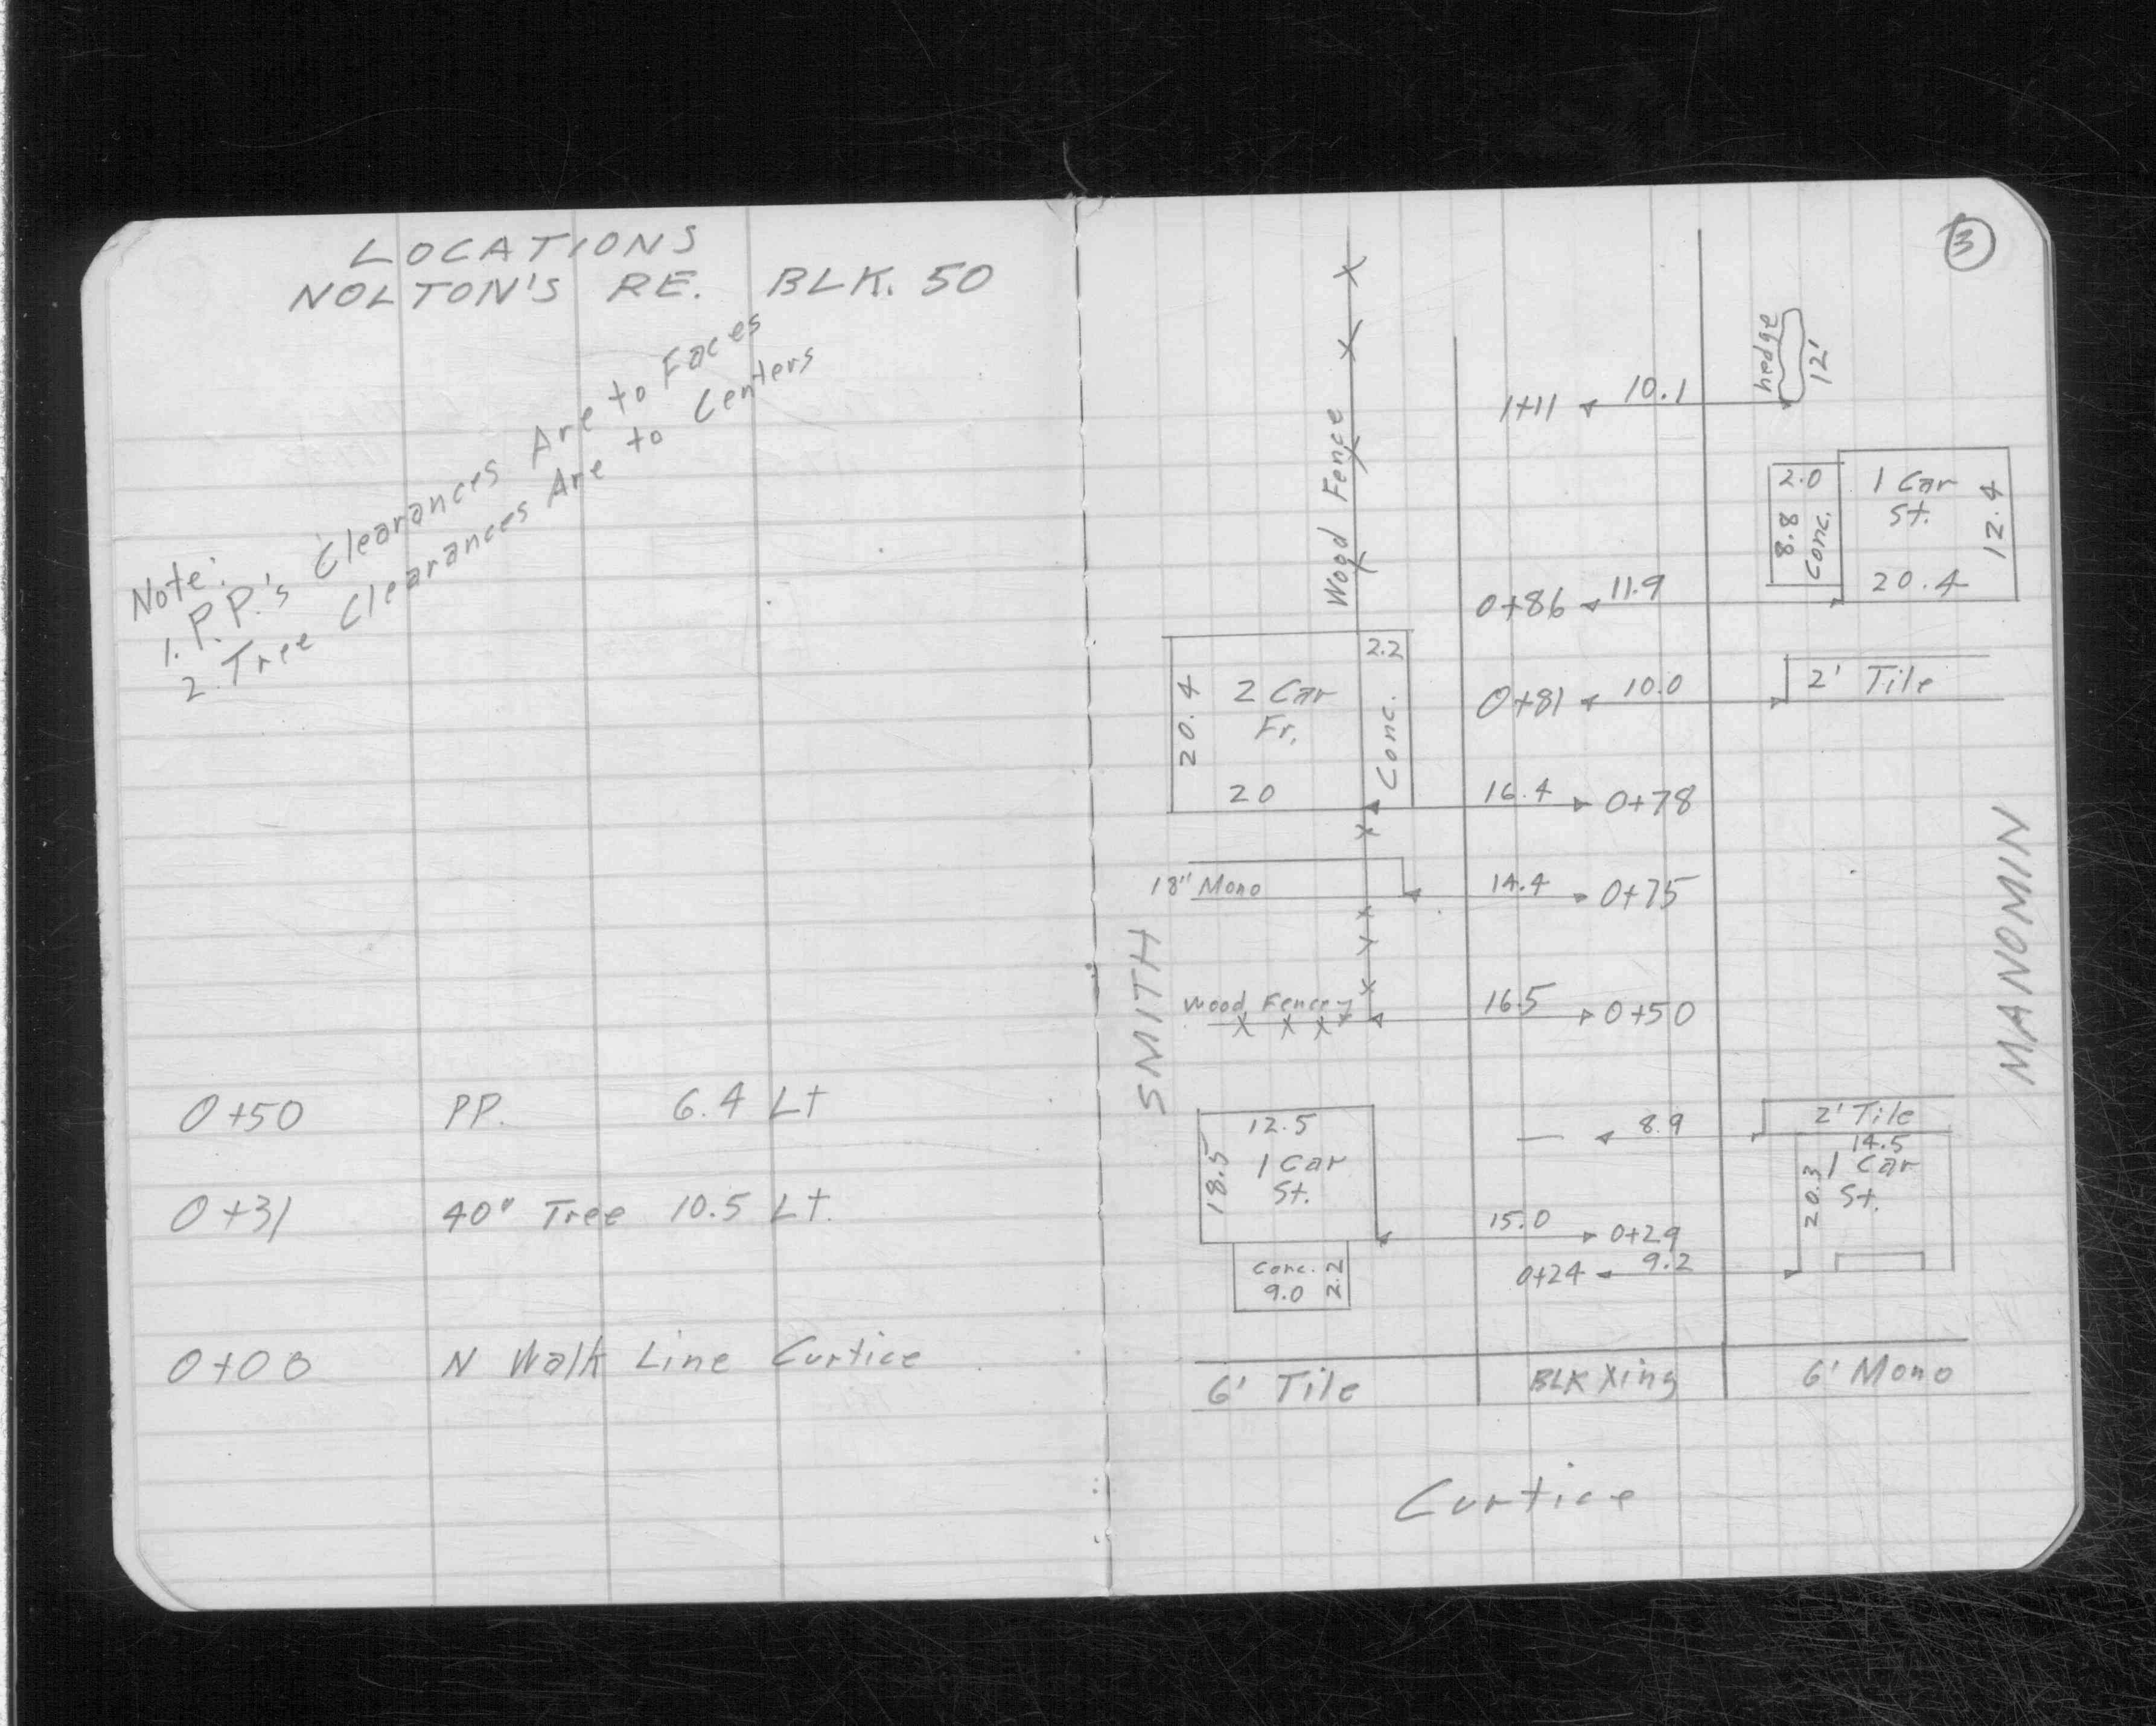 LOCATIONS
NOLTON'S RE. BLK. 50
Note:
1. P.P.'s Clearances Are to Faces
2. Tree Clearances Are to Centers
0+50 PP. 6.4 Lt
0+31 40" Tree 10.5 Lt.
0+00 N Walk Line Curtice
3
hedge
12'
1+11 10.1
Wood Fence
2.0
8.8
Conc.
1 Car
St.
12.4
20.4
0+86 11.9
2.2
Conc.
20.4
2 Car
Fr.
20
0+81 10.0 2' Tile
16.4 0+78
18" Mono 14.4 0+75
SMITH
MANOMIN
Wood Fence 16.5 0+50
8.9 2' Tile
12.5
18.5
1 Car
St.
14.5
20.3
1 Car
St.
15.0 0+29
0+24 9.2
Conc.
9.0
2.2
6' Tile BLK Xing 6' Mono
Curtice